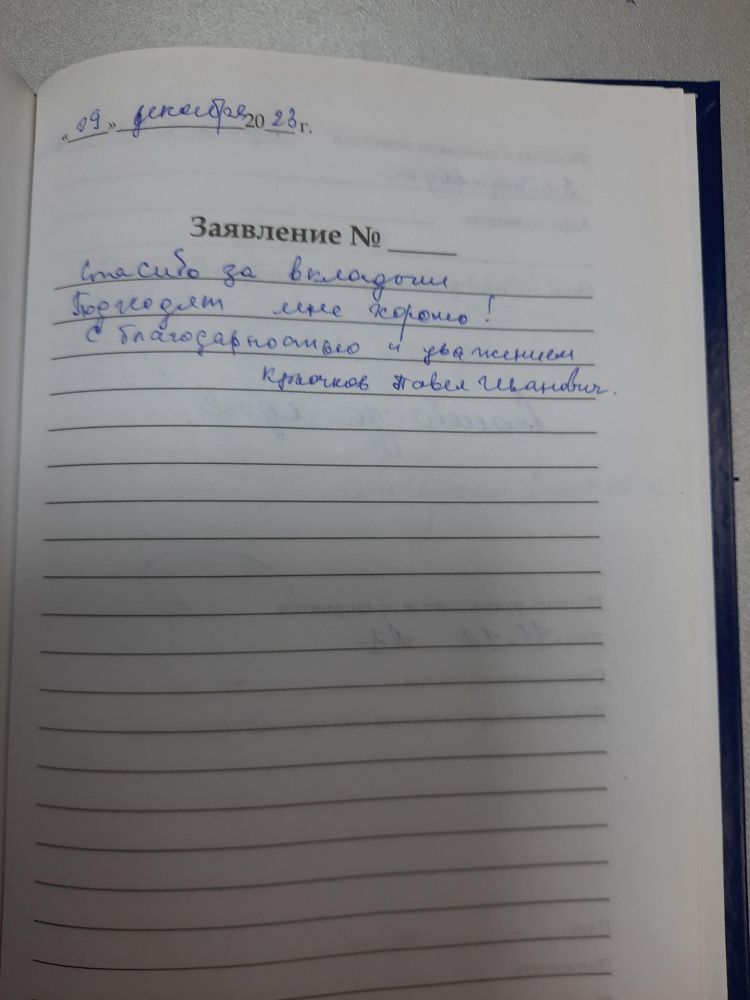 « 09 » декабря 20 23 г.
Заявление № ____
Спасибо за вкладыши
Подходят мне хорошо!
С благодарностью и уважением
Крючков Павел Иванович.